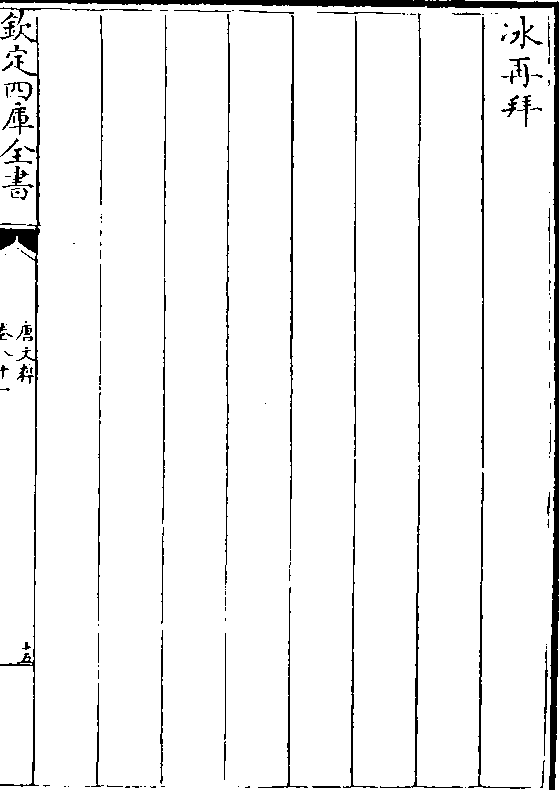 冰再拜
欽定四庫全書
唐文粹
卷八十一
十五